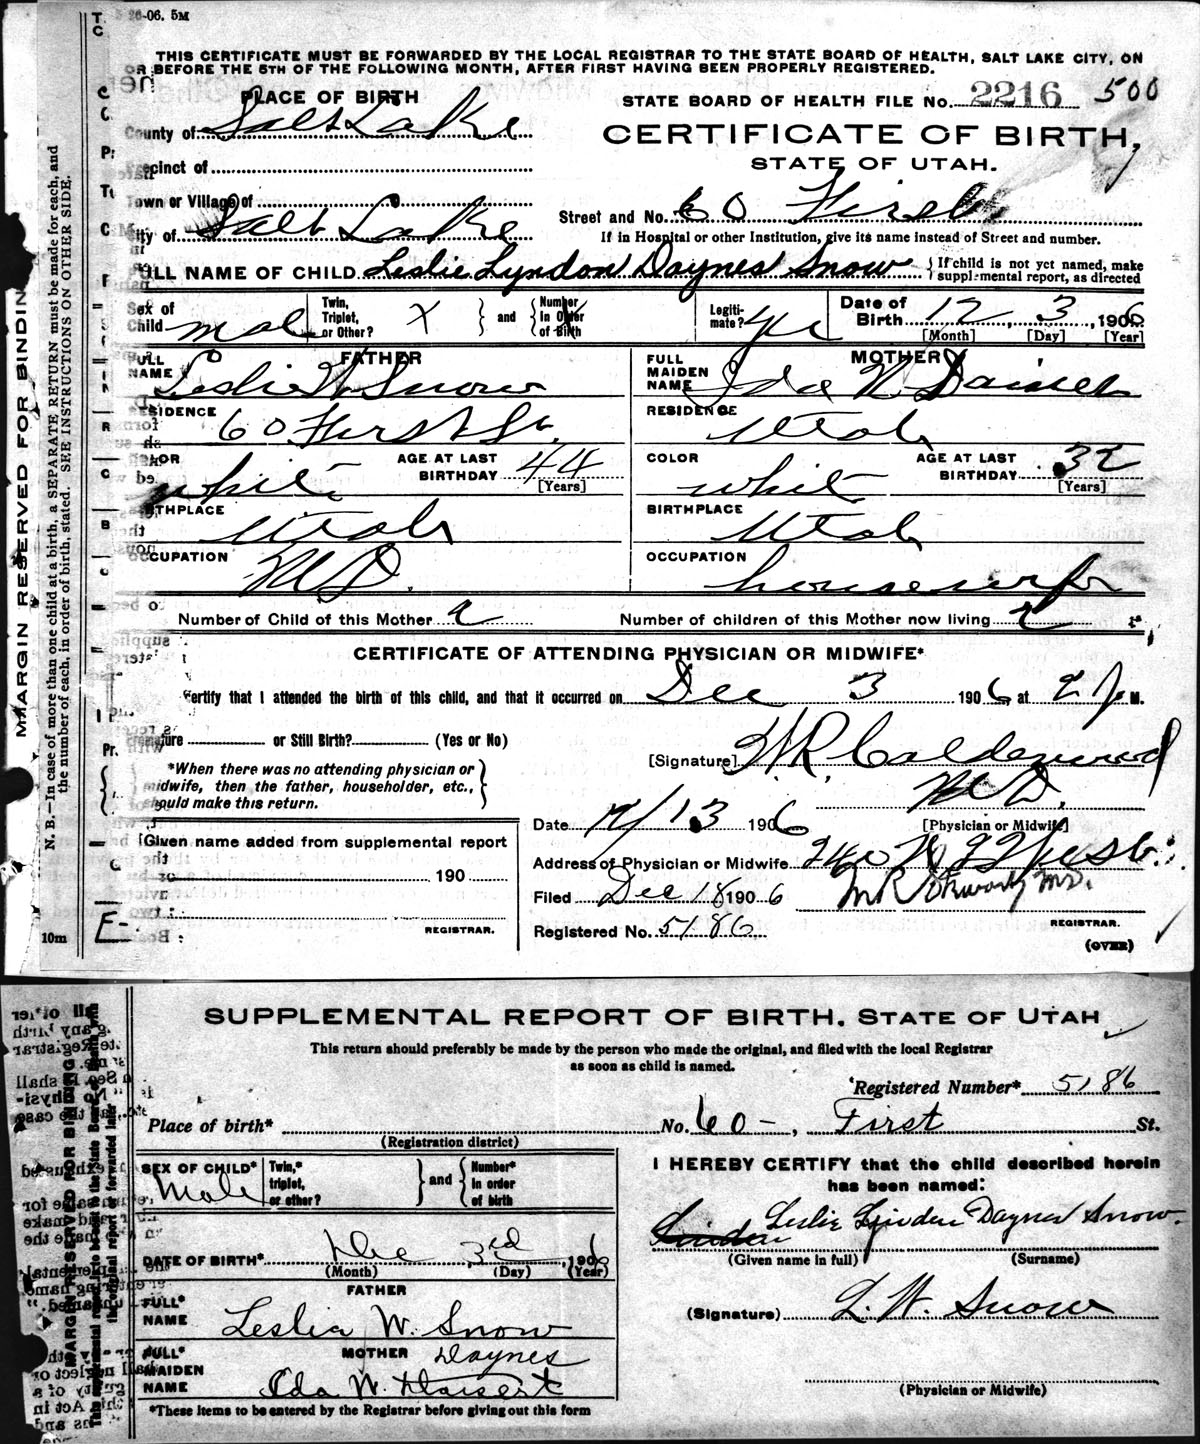 26-06. 5M
THIS CERTIFICATE MUST BE FORWARDED BY THE LOCAL REGISTRAR TO THE STATE BOARD OF HEALTH, SALT LAKE CITY, ON
OR BEFORE THE 5TH OF THE FOLLOWING MONTH, AFTER FIRST HAVING BEEN PROPERLY REGISTERED.
PLACE OF BIRTH
STATE BOARD OF HEALTH FILE No. 2216 500
County of Salt Lake
CERTIFICATE OF BIRTH,
STATE OF UTAH.
recinct of
Town or Village of
Street and No. 60 First
City of Salt Lake
If in Hospital or other Institution, give its name instead of Street and number.
ULL NAME OF CHILD Leslie Lyndon Daynes Snow { If child is not yet named, make supplemental report, as directed
Sex of Child Mal Twin, Triplet, or Other? X and Number in Order of Birth Legiti- mate? Yes Date of Birth 12, 3, 1906
[Month] [Day] [Year]
FATHER
FULL NAME Leslie W Snow
RESIDENCE 60 First St.
COLOR white AGE AT LAST BIRTHDAY 44
[Years]
BIRTHPLACE Utah
OCCUPATION M D.
MOTHER
FULL MAIDEN NAME Ida W Daines
RESIDENCE Utah
COLOR white AGE AT LAST BIRTHDAY 32
[Years]
BIRTHPLACE Utah
OCCUPATION housewife
Number of Child of this Mother 2 Number of children of this Mother now living 2
CERTIFICATE OF ATTENDING PHYSICIAN OR MIDWIFE*
Certify that I attended the birth of this child, and that it occurred on Dec 3 1906 at 2 P M.
Premature or Still Birth? (Yes or No)
[Signature] W.R. Calderwood
M D.
[Physician or Midwife]
*When there was no attending physician or
midwife, then the father, householder, etc.,
should make this return.
Date 12/13 1906
Given name added from supplemental report
190
REGISTRAR.
Address of Physician or Midwife
Filed Dec 18 1906
REGISTRAR.
Registered No. 5186
(OVER)
MARGIN RESERVED FOR BINDIN
N. B.—In case of more than one child at a birth, a SEPARATE RETURN must be made for each, and
the number of each, in order of birth, stated. SEE INSTRUCTIONS ON OTHER SIDE.
10m
SUPPLEMENTAL REPORT OF BIRTH. STATE OF UTAH
This return should preferably be made by the person who made the original, and filed with the local Registrar
as soon as child is named.
Registered Number* 5186
Place of birth* No. 60 -, First St.
(Registration district)
SEX OF CHILD* Male Twin,* triplet, or other? and Number* in order of birth
DATE OF BIRTH* Dec 3rd, 1906
(Month) (Day) (Year)
FATHER
FULL* NAME Leslie W. Snow
MOTHER Daynes
FULL* MAIDEN NAME Ida W.
*These items to be entered by the Registrar before giving out this form
I HEREBY CERTIFY that the child described herein
has been named:
Leslie Linden Daynes Snow.
(Given name in full) (Surname)
(Signature) L. W. Snow
(Physician or Midwife)
MARGIN RESERVED FOR BINDING